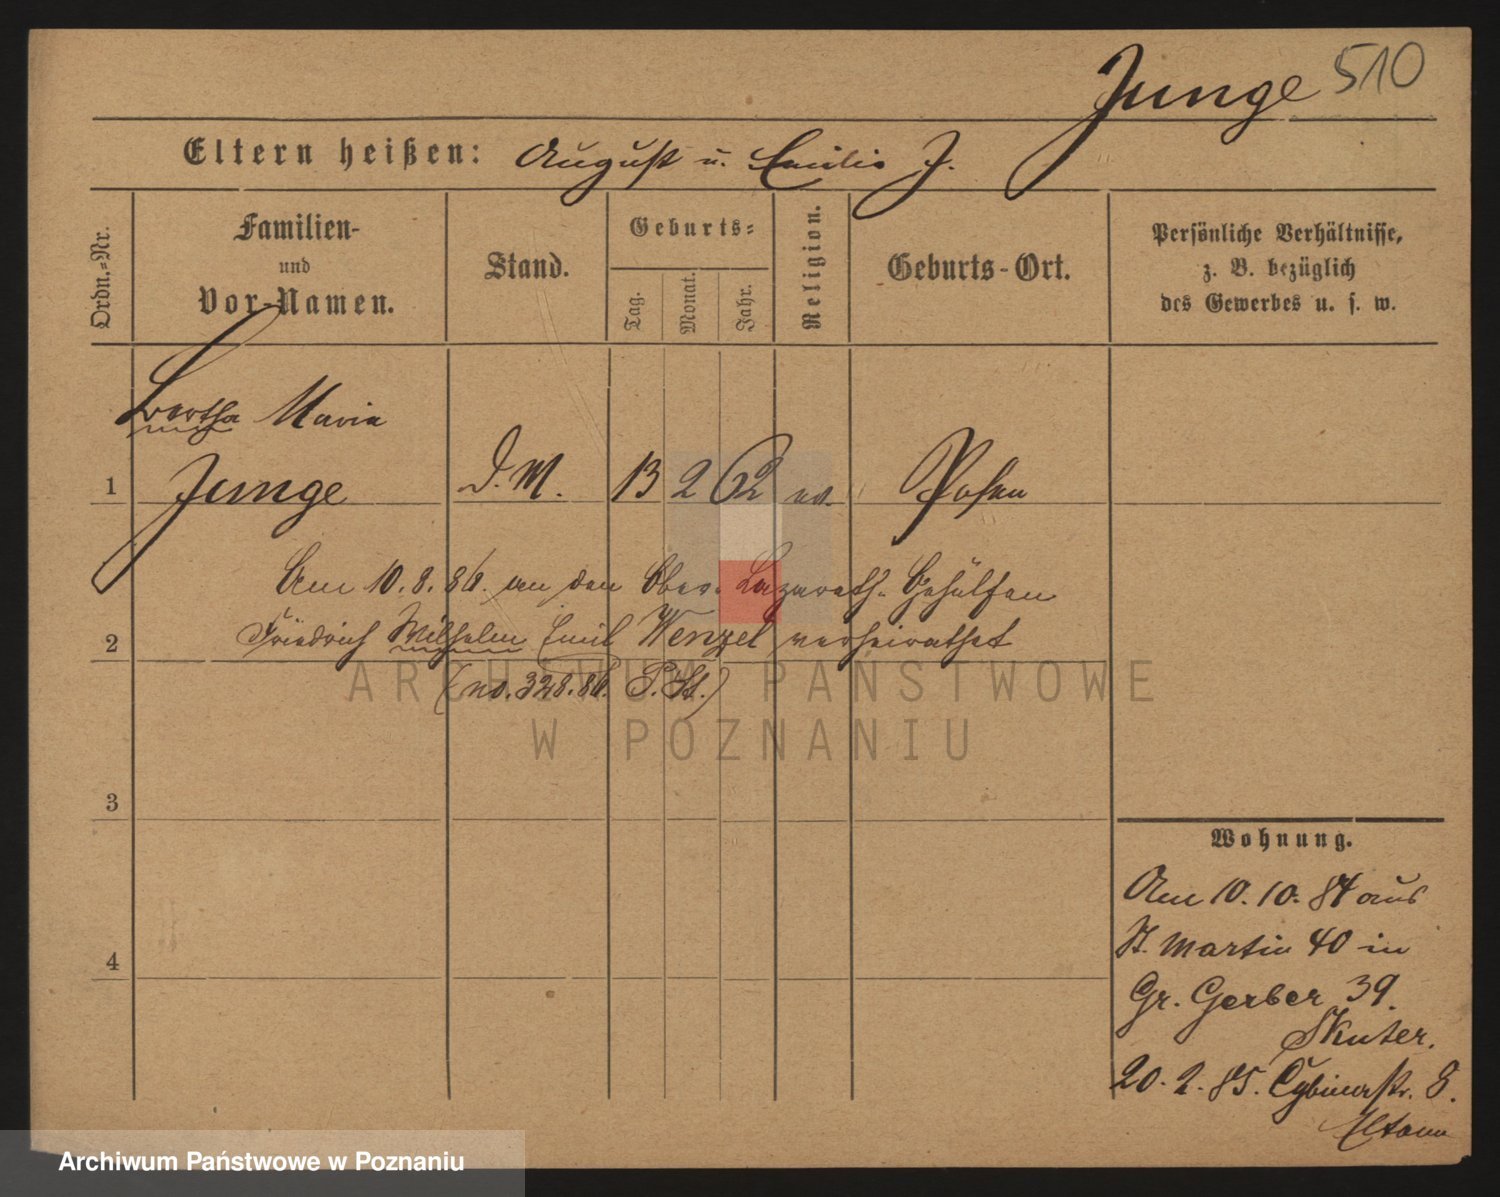 Junge 510
Eltern heißen: August u. Emilie J.
Ordn.=Nr.
Familien-
und
Vor-Namen.
Stand.
Geburts=
Tag.
Monat.
Jahr.
Religion.
Geburts-Ort.
Persönliche Verhältnisse,
z. B. bezüglich
des Gewerbes u. s. w.
Bertha Maria
1 Junge D.M. 13 2 62 ev. Posen
Am 10.8.86. an den Ober-Lazareth-Gehülfen
2 Friedrich Wilhelm Emil Wenzel verheirathet
(no. 328.86. P. St.)
3
4
Wohnung.
Am 10.10.84 aus
St. Martin 40 in
Gr. Gerber 39.
20.2.85. Cybinastr. 8.
ARCHIWUM PAŃSTWOWE
W POZNANIU
Archiwum Państwowe w Poznaniu